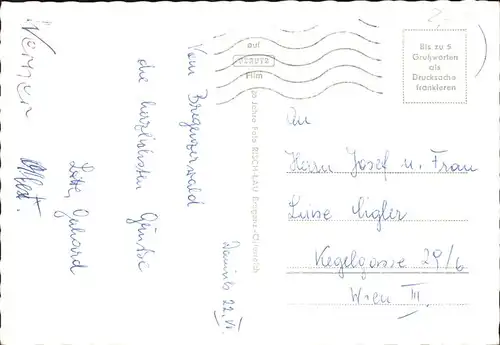 Vom Bregenzerwald
die herzlichsten Grüße
Lotte, Gerhard
Werner
22. VI.
auf
Film
Bis zu 5
Grußworten
als
Drucksache
frankieren
Foto RISCH-LAU Bregenz-Österreich
An
Herrn Josef u. Frau
Luise Sigler
Kegelgasse 29/6
Wien III.